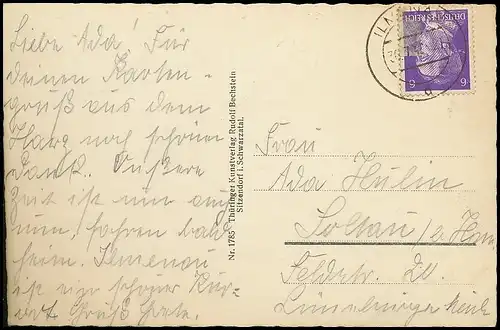 Liebe Ada! Für
deinen Karten-
gruß aus dem
Harz noch schönen
Dank. Unsere
Zeit ist nun auch
um, fahren bald
heim. Ilmenau
ist ein schöner Kur-
ort Gruß
Nr. 1785 Thüringer Kunstverlag Rudolf Bechstein
Sitzendorf i. Schwarzatal.
DEUTSCHES REICH
6 6
Frau
Ada Hulin
Soltau / Han
Feldstr. 20.
Lüneburger Heide